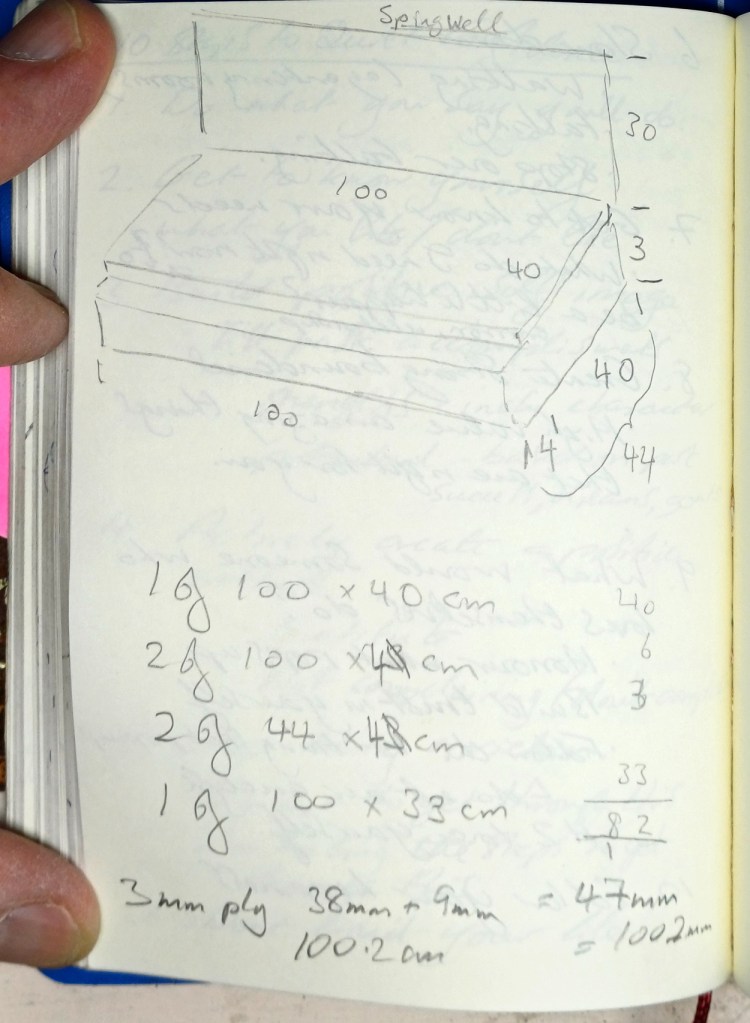 Spingwell
30
100
3
40
40
100
14
44
1 of 100 × 40 cm
40
2 of 100 × 4 cm
6
2 of 44 × 4 cm
3
1 of 100 × 33 cm
33
82
1
3mm ply 38mm + 9mm = 47mm
100.2 cm = 1002mm